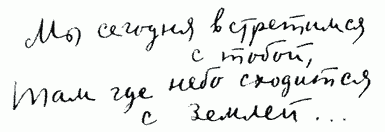 Мы сегодня встретимся
с тобой,
Там где небо сходится
с землей...